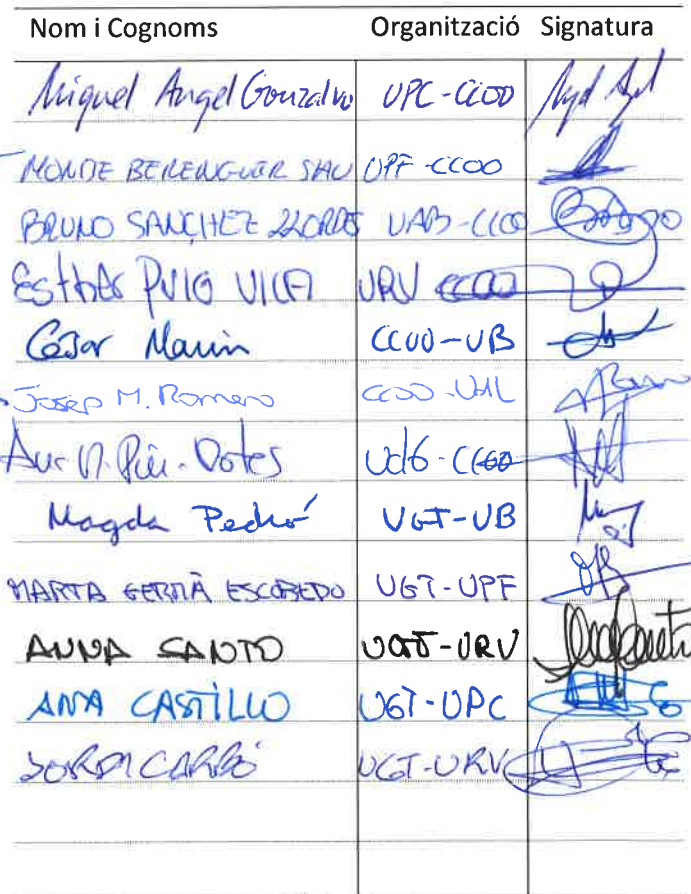 Nom i Cognoms Organització Signatura
Miquel Angel Gonzalvo UPC-CCOO
MONTE BERENGUER SAU UPF-CCOO
BRUNO SANCHEZ LLORDES UAB-CCOO
Esther PUIG VILA URV CCOO
César Marin CCOO-UB
Josep M. Romero CCOO-UdL
UdG-CCOO
Magda Pedró UGT-UB
MARTA GERMÀ ESCOBEDO UGT-UPF
ANNA SANTO UGT-URV
ANA CASTILLO UGT-UPC
JORDI CARBÓ UGT-URV